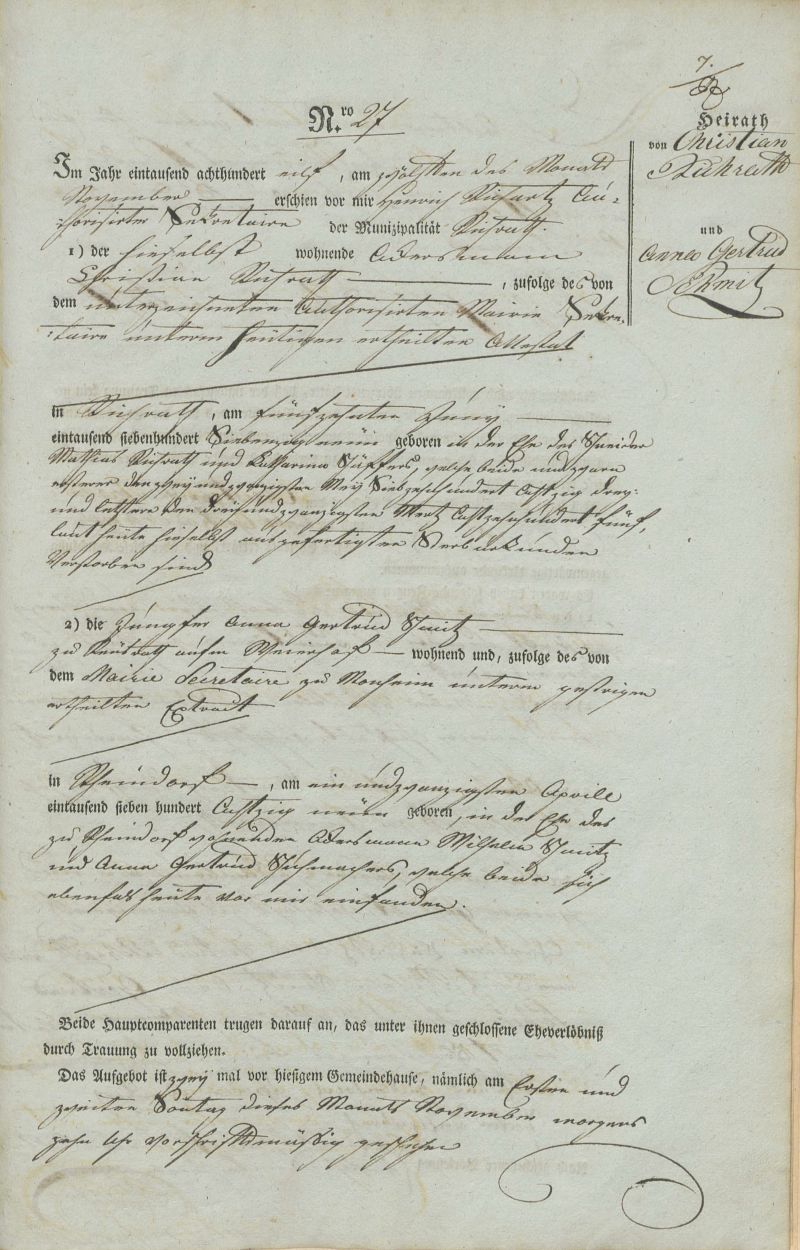 7.
N.ro 27
Heirath
von Christian
Ruhrath
und
Anna Gertrud
Schmitz
Im Jahr eintausend achthundert eilf, am zwölften des Monats
November erschien vor mir Henrich Au-
thorisirter Sekretaire der Munizipalität Richrath.
1) der hieselbst wohnende Ackersmann
Christian Richrath, zufolge des von
dem unterzeichneten Authorisirten Mairie Sekre-
taire unterm heutigen ertheilten Attestat
in Richrath, am fünfzehnten Juny
eintausend siebenhundert Siebenzig neun geboren in der Ehe des Schneider
Mathias Richrath und Katharina Schäffers, welche beide und zwarn
ersterer den zwey und zwanzigsten May Siebzehnhundert Achtzig drey
und letztere den dreyundzwanzigsten Mertz Achtzehnhundert fünf,
laut heute hieselbst ausgefertigten Sterburkunden
Verstorben sind
2) die Jungfer Anna Gertrud Schmitz
zu aufm wohnend und, zufolge des von
dem Mairie Secretaire zu Monheim unterm gestrigen
ertheilten Extract
in Rheindorf, am ein und zwanzigsten Aprill
eintausend sieben hundert Achtzig neun geboren, in der Ehe des
zu Rheindorf wohnenden Ackersmann Wilhelm Schmitz
und Anna Gertrud Schuhmachers, welche beide sich
ebenfals heute vor mir einfanden.
Beide Hauptcomparenten trugen darauf an, das unter ihnen geschlossene Eheverlöbniß
durch Trauung zu vollziehen.
Das Aufgebot ist zwey mal vor hiesigem Gemeindehause, nämlich am Ersten und
zweiten Sontag dieses Monats November morgens
zehn Uhr vorschriftsmässig geschehen